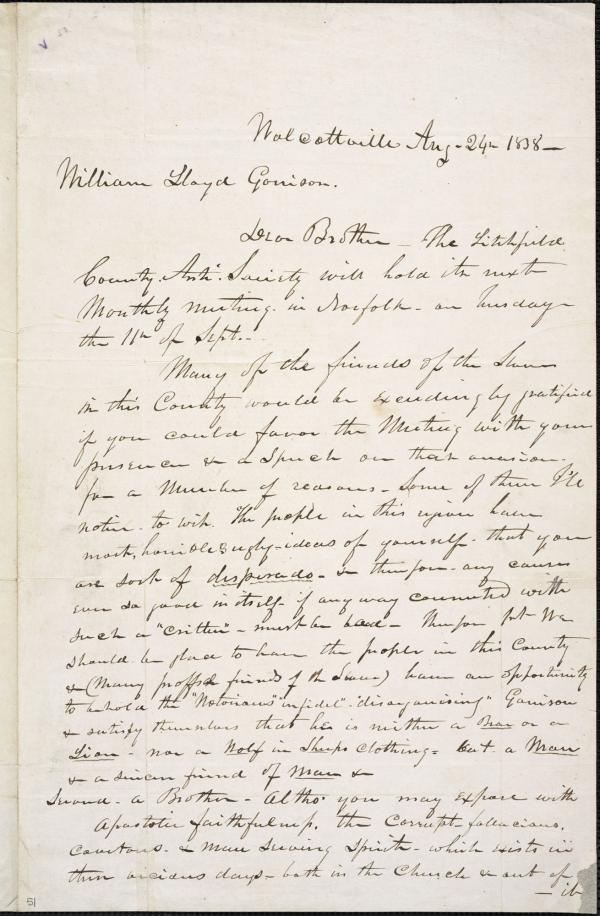 Wolcottville Aug - 24th 1838 -
William Lloyd Garrison.
Dear Brother - The Litchfield
County Anti. Society will hold its next
Monthly meeting in Norfolk - on Tuesday
the 11th of Sept. -
Many of the friends of the Slave
in this County would be exceedingly gratified
if you could favor the Meeting with your
presence & a Speech on that occasion.
for a Number of reasons - Some of them I'le
notice - to wit. The people in this region have
most, horrible & ugly - ideas of yourself - that you
are sort of desperado - & therefore - any cause
ever so good in itself - if any way connected with
such a "Critter" - must be bad - Therefore 1st We
should be glad to have the people in this County
& (Many professed friends of the Slave) have an opportunity
to behold the "Notorious" "infidel" "disorganising" Garrison
& satisfy themselves that he is neither a Bear or a
Lion - nor a Wolf in Sheeps Clothing - but a Man
& a sincere friend of Man &
Second - a Brother - Altho' you may expose with
Apostolic faithfulness, the Corrupt fallacious,
Covetous - & man serving Spirit - which exists in
these vicious days - both in the Church & out of
- it
51